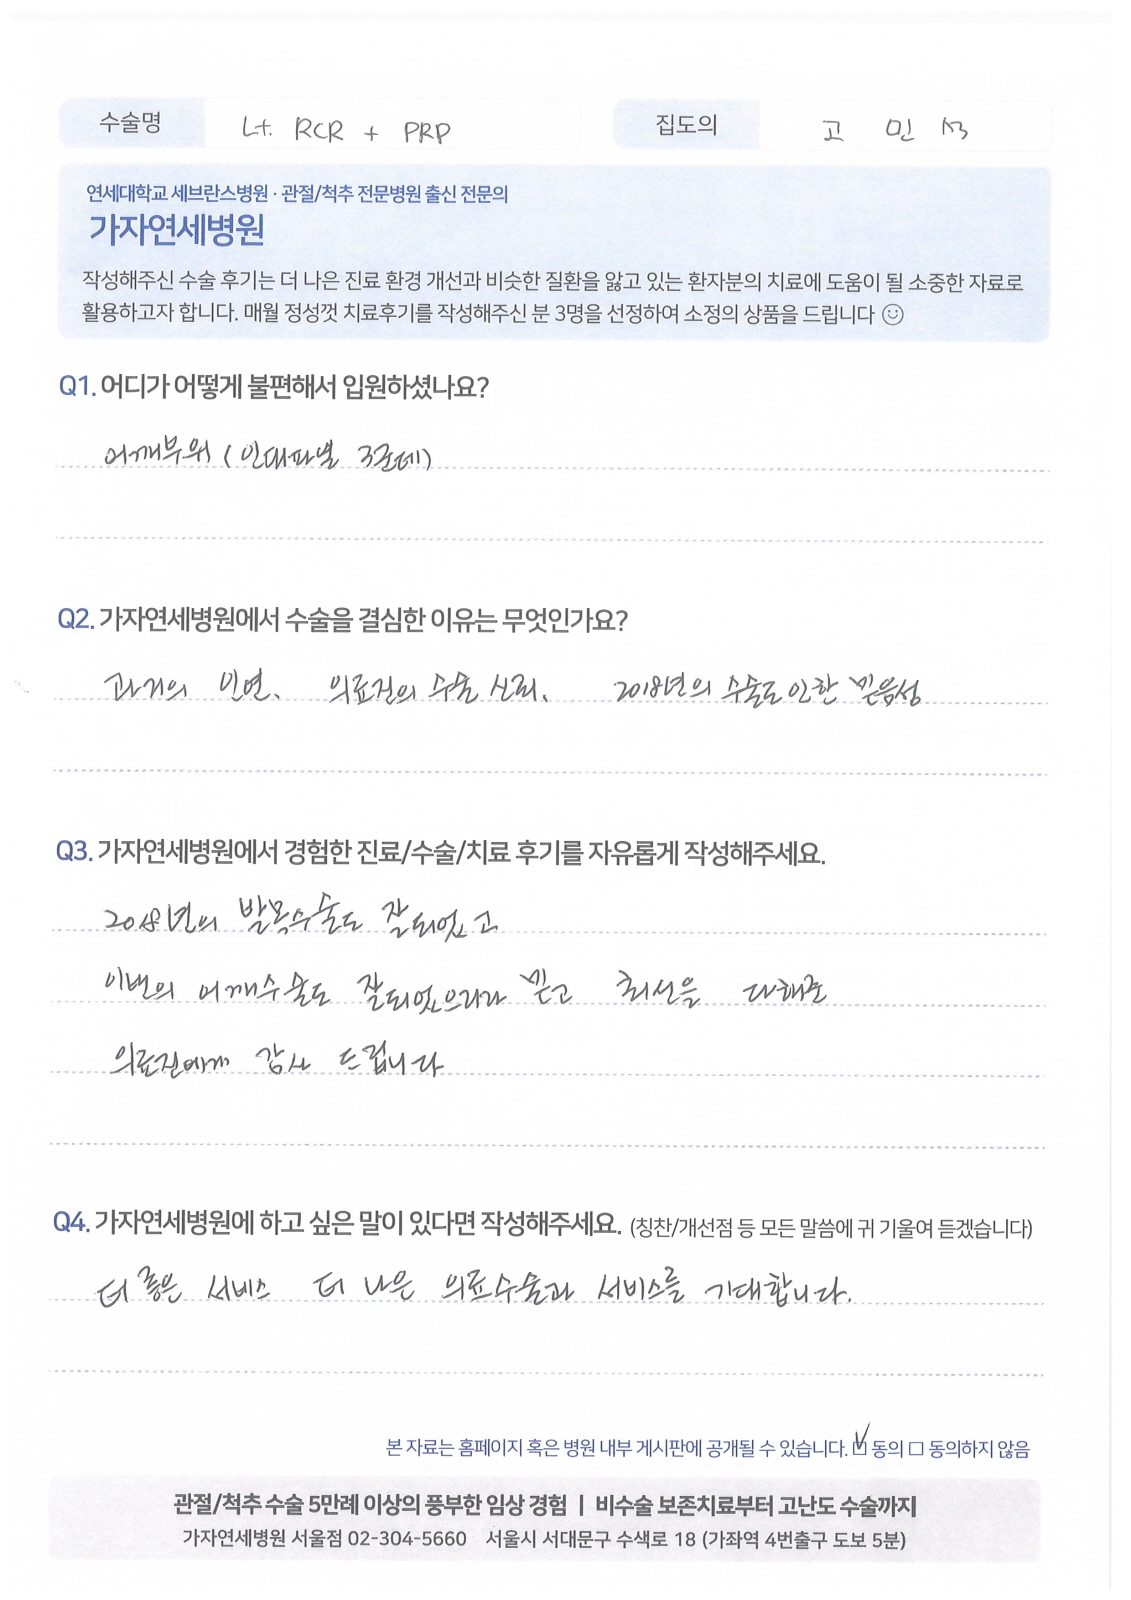 수술명 Lt. RCR + PRP 집도의 고 민 석
연세대학교 세브란스병원 · 관절/척추 전문병원 출신 전문의
가자연세병원
작성해주신 수술 후기는 더 나은 진료 환경 개선과 비슷한 질환을 앓고 있는 환자분의 치료에 도움이 될 소중한 자료로
활용하고자 합니다. 매월 정성껏 치료후기를 작성해주신 분 3명을 선정하여 소정의 상품을 드립니다
Q1. 어디가 어떻게 불편해서 입원하셨나요?
어깨부위 (인대파열 3군데)
Q2. 가자연세병원에서 수술을 결심한 이유는 무엇인가요?
과거의 인연、 의료진의 수술 신뢰、 2018년의 수술로 인한 믿음성
Q3. 가자연세병원에서 경험한 진료/수술/치료 후기를 자유롭게 작성해주세요.
2018년의 발목수술도 잘되었고
이번의 어깨수술도 잘되었으리라 믿고 최선을 다해준
의료진에게 감사 드립니다
Q4. 가자연세병원에 하고 싶은 말이 있다면 작성해주세요. (칭찬/개선점 등 모든 말씀에 귀 기울여 듣겠습니다)
더 좋은 서비스 더 나은 의료수술과 서비스를 기대합니다.
본 자료는 홈페이지 혹은 병원 내부 게시판에 공개될 수 있습니다. ☑ 동의 □ 동의하지 않음
관절/척추 수술 5만례 이상의 풍부한 임상 경험 | 비수술 보존치료부터 고난도 수술까지
가자연세병원 서울점 02-304-5660 서울시 서대문구 수색로 18 (가좌역 4번출구 도보 5분)